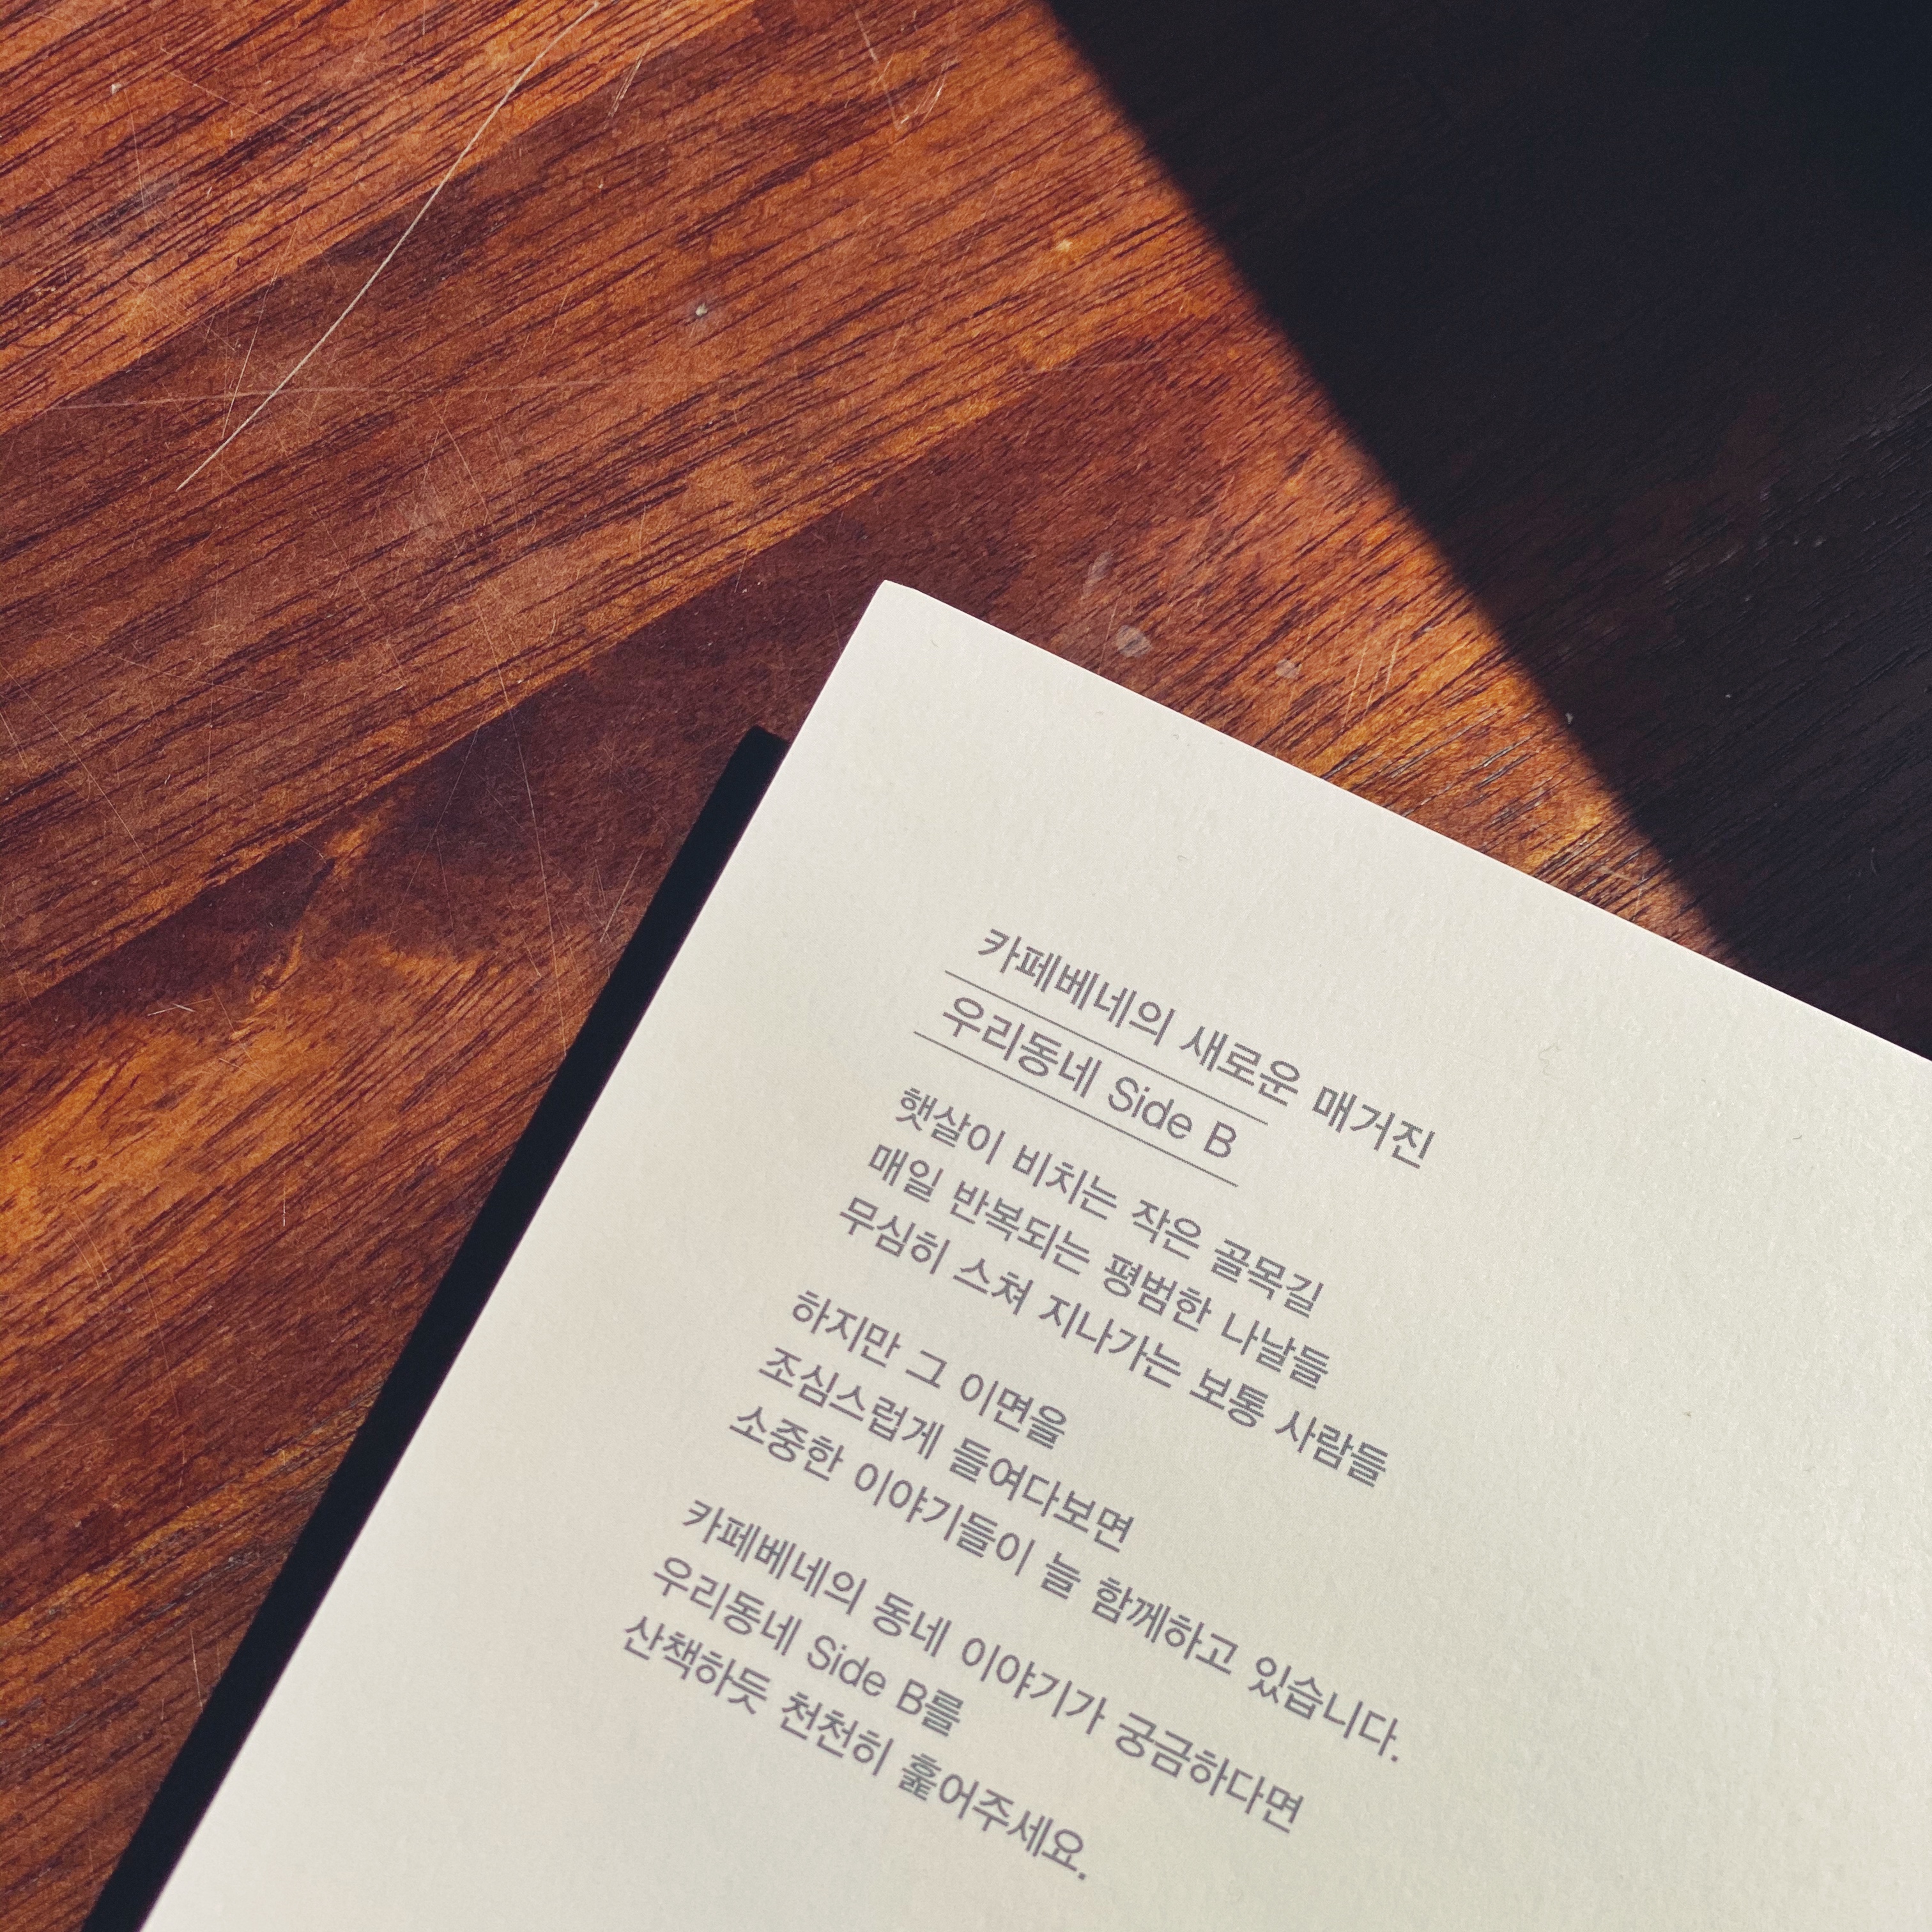 카페베네의 새로운 매거진
우리동네 Side B
햇살이 비치는 작은 골목길
매일 반복되는 평범한 나날들
무심히 스쳐 지나가는 보통 사람들
하지만 그 이면을
조심스럽게 들여다보면
소중한 이야기들이 늘 함께하고 있습니다.
카페베네의 동네 이야기가 궁금하다면
우리동네 Side B를
산책하듯 천천히 훑어주세요.